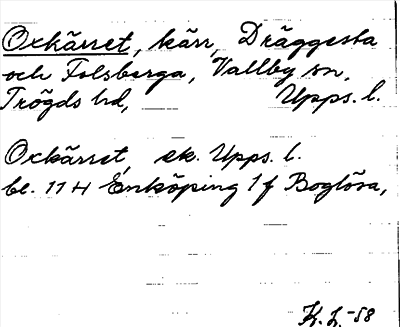 Oxkärret, kärr, Dräggesta
och Folsberga, Vallby sn,
Trögds hd, Upps. l.
Oxkärret, ek. Upps. l.
bl. 11 H Enköping 1 f Boglösa,
K. L. -58